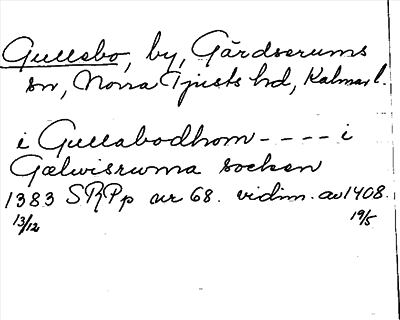 Gullsbo, by, Gärdserums
sn, Norra Tjusts hd, Kalmar l.
i Gullabodhom - - - - i
Gælwisrwma socken
1383 SRPp nr 68. vidim. av 1408.
13/12 19/5